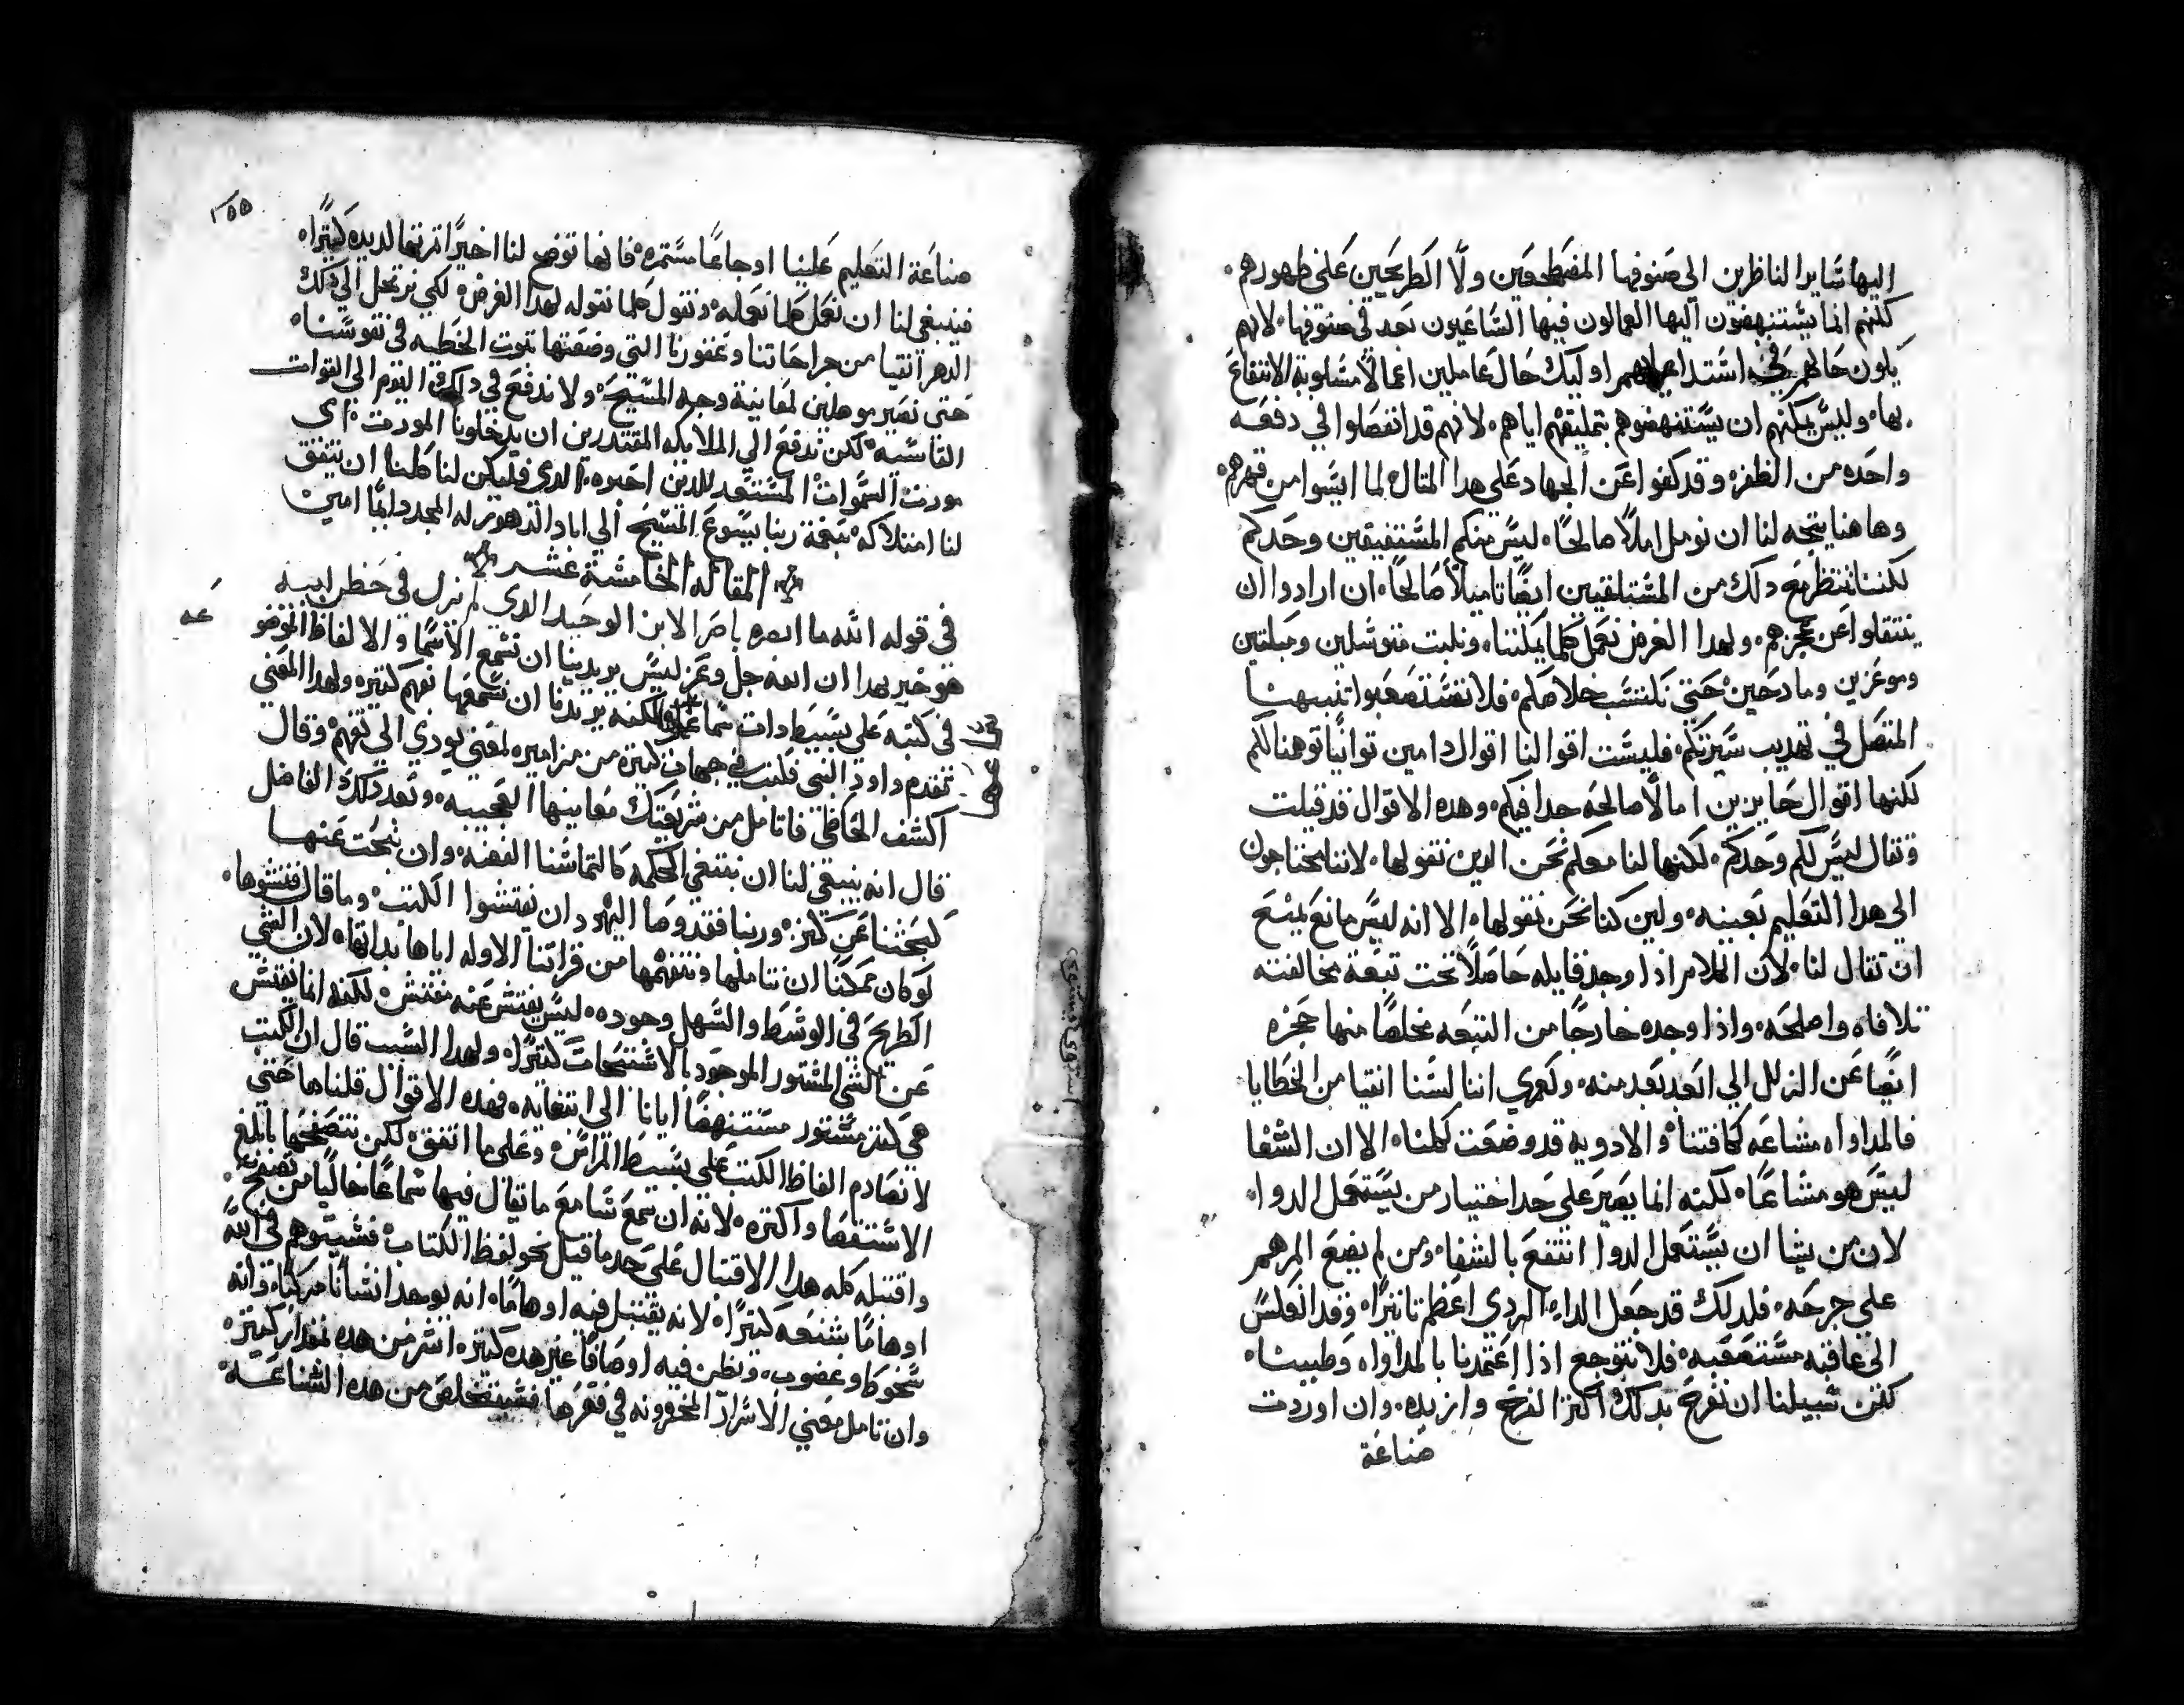 اليها ساير الناظرين الي صنوفها المضطجعين ولا الطريحين علي ظهورهم
لكنهم انما يستنهضون اليها العمالون فيها الساعيون بعد في صنوفها لانهم
يكون حالهم في اشتداد اوليك حال عاملين اعمالا مسلوبة الانتفاع
بها وليس يمكنهم ان يستنهضوهم بتمليقهم اياهم لانهم قد انفصلوا في دفعه
واحده من الظفر وقد كفوا عن الجهاد علي هدا المتال لما ايسوا من قهرهم
وهاهنا يتجه لنا ان نومل املا صالحا ليس منكم المستفيقين وحدكم
لكننا ننتظر مع دلك من المستلقيين ايضا تاميلا صالحا ان ارادوا ان
ينتقلوا عن عجزهم ولهدا الغرض نعمل كلما يمكننا ونلبت متوسلين ومبلتين
وموعزين ومادحين حتي نكتسب خلاصكم فلا تستصعبوا تنبيهنا
المتصل في تهديب سيرتكم فليست اقوالنا اقوال دامين توانيا توهنا لكم
لكنها اقوال حايزين امالا صالحه جدا فيكم وهده الاقوال قد قيلت
وتقال ليس لكم وحدكم لكنها لنا معكم نحن الدين نقولها لاننا محتاجون
الي هدا التعليم بعينه ولين كنا نحن نقولها الا انه ليس مانع يمنع
ان تقال لنا لان الكلام اذا وجد قايله حاصلا تحت تبعة مخالفته
تلافاه واصلحه واذا وجده خارجا من التبعه مخلصا منها حجزه
ايضا عن الزلل الي ابعد بعد منه ولعمري اننا لسنا انقيا من الخطايا
فالمداواه مشاعه كافتنا والادويه قد وضعت كلنا الا ان الشفا
ليس هو مشاعا لكنه انما يصير علي حد اختيار من يستعمل الدوا
لان من يشا ان يستعمل الدوا انتفع بالشفا ومن لم يضع المرهم
علي جرحه فلدلك قد جعل الدا الردي اعظم تاتيرا وقد انعكس
الي عاقبه مستصعبه فلا نتوجع اذا اعتمدنا بالمداواه وطبيبنا
لكن سبيلنا ان نفرح بدلك اكثر الفرح وازيده وان اوردت
صناعة
١٥٥
صناعة التعليم علينا اوجاعا مستمره فانها توضح لنا اخيرا اثرتها لديده كتيرا
فينبغي لنا ان نعمل كلما نعمله ونقول كلما نقوله لهدا الغرض لكي نرتحل الي دلك
الدهر انقيا من جراحاتنا وعفورنا التي وضعتها تموت الخطيه في نفوسنا
حتي نصير موهلين لمعاينة وجه المسيح ولا ندفع في دلك اليوم الي القوات
القاسيه لكن ندفع الي الملايكه المقتدرين ان يدخلونا المورت اي
مورت السموات المستعد للدين احبوه الدي فليكن لنا كلنا ان يتفق
لنا امتلاكه بنعمة ربنا يسوع المسيح الي اباد الدهور له المجد دايما امين
المقاله الخامسة عشر
في قوله الله ما ابصره باصر الابن الوحيد الدي لم يزل في حضن ابيه
هو خبر بهدا ان الله جل وعز ليس يريدنا ان نسمع الاسما والالفاظ الموضو
عه
في كتبه علي بسيط دات سماعها لكنه يريدنا ان نسمعها بفهم كتير ولهدا المعني
تقدم داود النبي فكتب في جهات كتيره من مزاميره لمعني يودي الي تفهم وقال
اكشف الحاظي فاتامل من شريعتك معانيها العجيبه وبعد دلك الفاضل
قال انه ينبغي لنا ان نبتغي الحكمه كالتماسنا الفضه وان نبحت عنها
كبحثنا عن كنز وربنا فقد وصا اليهود ان يفتشوا الكتب وما قال فتشوها
لو كان يمكننا ان نتاملها ونتفهمها من قراتنا الاوله اياها بداتها لان الشي
الطريح في الوسط والسهل وجوده ليس يفتش عنه مفتش لكنه انما يفتش
عن الشي المستور الموجود بالاستبحات كتيرا ولهدا السبب قال ان الكتب
هي كنز مستور مستنهضا ايانا الي ابتغايه فهده الاقوال قلناها حتي
لا نصادم الفاظ الكتب علي بسيط المرامز وعلي ما اتفق لكن نتصفحها بالبلغ
الاستقصا واكتره لانه ان سمع سامع ما تقال فيها سماعا خاليا من تصفح
واقتبله كله هدا الاقتبال علي حد ما قيل نحو لفظ الكتاب فسيتوهم في الله
اوهاما شنعه كتيرا لانه يقتبل فيه اوهاما انه يوجد انسانا مركبا وانه
سخوط وغضوب ويظن فيه اوصافا غير هده كتيره اشر من هده بمقدار كتيره
وان تامل معني الاسرار المخزونه في قعرها فسيتخلص من هده الشناعه